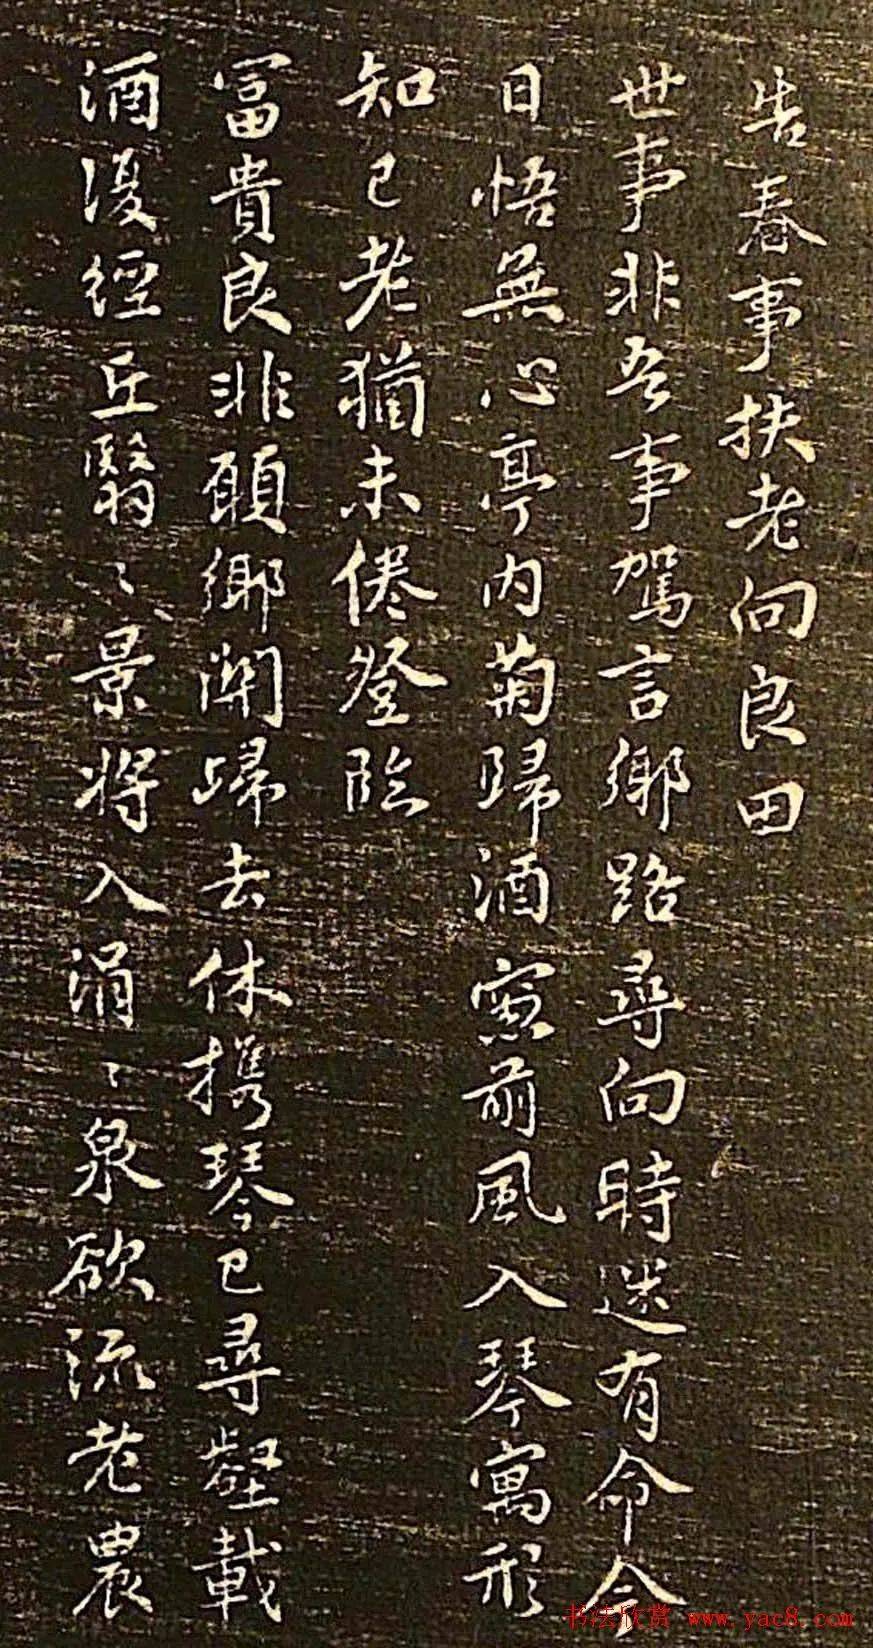 告春事扶老向良田
世事非吾事駕言鄉路尋向時迷有命今
日悟無心亭内菊歸酒窓前風入琴寓形
知已老猶未倦登臨
富貴良非願鄉關歸去休携琴已尋壑載
酒復經丘翳〻景將入涓〻泉欲流老農
书法欣赏 www.yac8.com